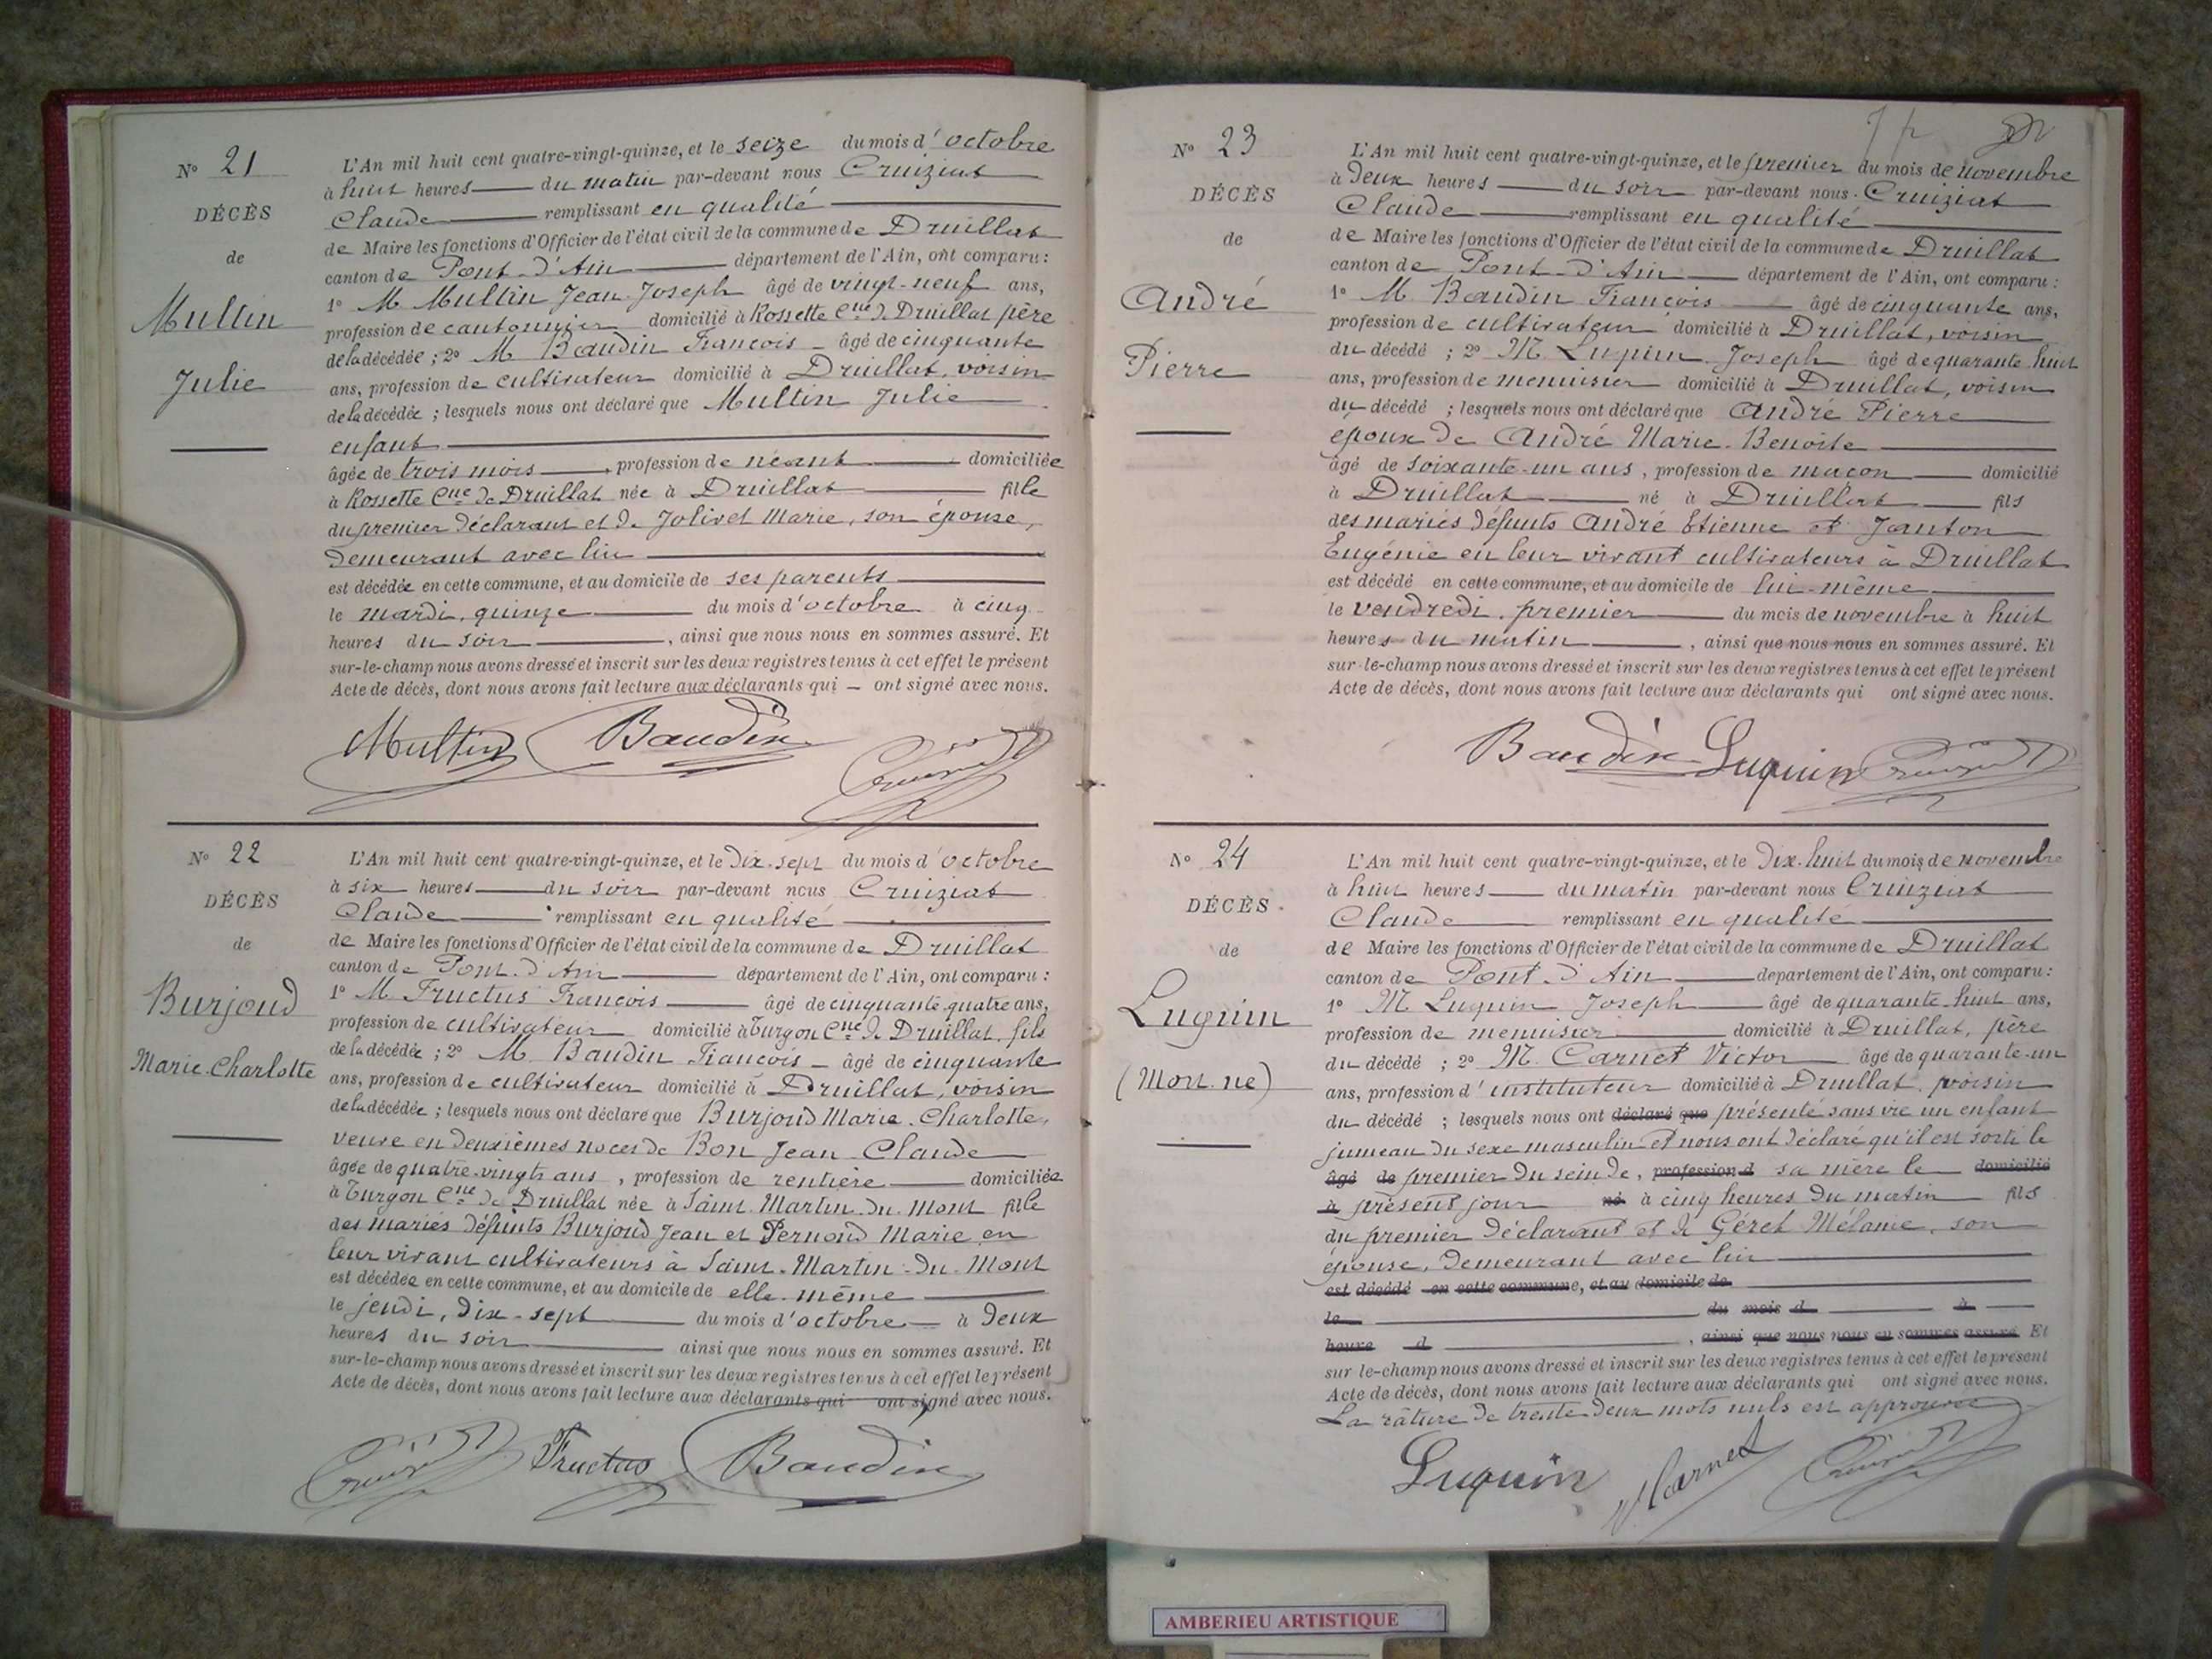 N° 21
DÉCÈS
de
Multin
Julie
L'An mil huit cent quatre-vingt-quinze, et le seize du mois d'octobre
à huit heures du matin par-devant nous Cruiziat
Claude remplissant en qualité
de Maire les fonctions d'Officier de l'état civil de la commune de Druillat
canton de Pont-d'Ain département de l'Ain, ont comparu :
1° M Multin Jean-Joseph âgé de vingt-neuf ans,
profession de cantonnier domicilié à Rossette Cne de Druillat père
de la décédée ; 2° M Baudin François âgé de cinquante
ans, profession de cultivateur domicilié à Druillat, voisin
de la décédée ; lesquels nous ont déclaré que Multin Julie
enfant
âgée de trois mois, profession de néant domiciliée
à Rossette Cne de Druillat née à Druillat fille
du premier déclarant et de Jolivet Marie, son épouse,
demeurant avec lui
est décédée en cette commune, et au domicile de ses parents
le mardi, quinze du mois d'octobre à cinq
heures du soir, ainsi que nous nous en sommes assuré. Et
sur-le-champ nous avons dressé et inscrit sur les deux registres tenus à cet effet le présent
Acte de décès, dont nous avons fait lecture aux déclarants qui ont signé avec nous.
Multin Baudin Cruiziat
N° 22
DÉCÈS
de
Burjoud
Marie-Charlotte
L'An mil huit cent quatre-vingt-quinze, et le dix-sept du mois d'octobre
à six heures du soir par-devant nous Cruiziat
Claude remplissant en qualité
de Maire les fonctions d'Officier de l'état civil de la commune de Druillat
canton de Pont-d'Ain département de l'Ain, ont comparu :
1° M Fructus François âgé de cinquante-quatre ans,
profession de cultivateur domicilié à Turgon Cne de Druillat, fils
de la décédée ; 2° M Baudin François âgé de cinquante
ans, profession de cultivateur domicilié à Druillat, voisin
de la décédée ; lesquels nous ont déclaré que Burjoud Marie-Charlotte,
veuve en deuxièmes noces de Bon Jean-Claude
âgée de quatre-vingts ans, profession de rentière domiciliée
à Turgon Cne de Druillat née à Saint-Martin-du-Mont fille
des mariés défunts Burjoud Jean et Pernoud Marie en
leur vivant cultivateurs à Saint-Martin-du-Mont
est décédée en cette commune, et au domicile de elle-même
le jeudi, dix-sept du mois d'octobre à deux
heures du soir ainsi que nous nous en sommes assuré. Et
sur-le-champ nous avons dressé et inscrit sur les deux registres tenus à cet effet le présent
Acte de décès, dont nous avons fait lecture aux déclarants qui ont signé avec nous.
Cruiziat Fructus Baudin
N° 23
DÉCÈS
de
André
Pierre
L'An mil huit cent quatre-vingt-quinze, et le premier du mois de novembre
à deux heures du soir par-devant nous Cruiziat
Claude remplissant en qualité
de Maire les fonctions d'Officier de l'état civil de la commune de Druillat
canton de Pont-d'Ain département de l'Ain, ont comparu :
1° M Baudin François âgé de cinquante ans,
profession de cultivateur domicilié à Druillat, voisin
du décédé ; 2° M Luquin Joseph âgé de quarante-huit
ans, profession de menuisier domicilié à Druillat, voisin
du décédé ; lesquels nous ont déclaré que André Pierre
époux de André Marie-Benoite
âgé de soixante-un ans, profession de maçon domicilié
à Druillat né à Druillat fils
des mariés défunts André Etienne et Janton
Eugénie en leur vivant cultivateurs à Druillat
est décédé en cette commune, et au domicile de lui-même
le vendredi, premier du mois de novembre à huit
heures du matin, ainsi que nous nous en sommes assuré. Et
sur-le-champ nous avons dressé et inscrit sur les deux registres tenus à cet effet le présent
Acte de décès, dont nous avons fait lecture aux déclarants qui ont signé avec nous.
Baudin Luquin Cruiziat
N° 24
DÉCÈS
de
Luquin
(Mort-né)
L'An mil huit cent quatre-vingt-quinze, et le dix-huit du mois de novembre
à huit heures du matin par-devant nous Cruiziat
Claude remplissant en qualité
de Maire les fonctions d'Officier de l'état civil de la commune de Druillat
canton de Pont-d'Ain département de l'Ain, ont comparu :
1° M Luquin Joseph âgé de quarante-huit ans,
profession de menuisier domicilié à Druillat, père
du décédé ; 2° M. Carnet Victor âgé de quarante-un
ans, profession d'instituteur domicilié à Druillat, voisin
du décédé ; lesquels nous ont déclaré que présenté sans vie un enfant
jumeau du sexe masculin et nous ont déclaré qu'il est sorti le
âgé de premier du sein de, profession d sa mère le domicilié
à présent jour né à cinq heures du matin fils
du premier déclarant et de Géret Mélanie, son
épouse, demeurant avec lui
est décédé en cette commune, et au domicile de
le du mois d à
heure d, ainsi que nous nous en sommes assuré. Et
sur le-champ nous avons dressé et inscrit sur les deux registres tenus à cet effet le présent
Acte de décès, dont nous avons fait lecture aux déclarants qui ont signé avec nous.
La râture de trente-deux mots nuls est approuvée
Luquin V. Carnet Cruiziat
AMBERIEU ARTISTIQUE